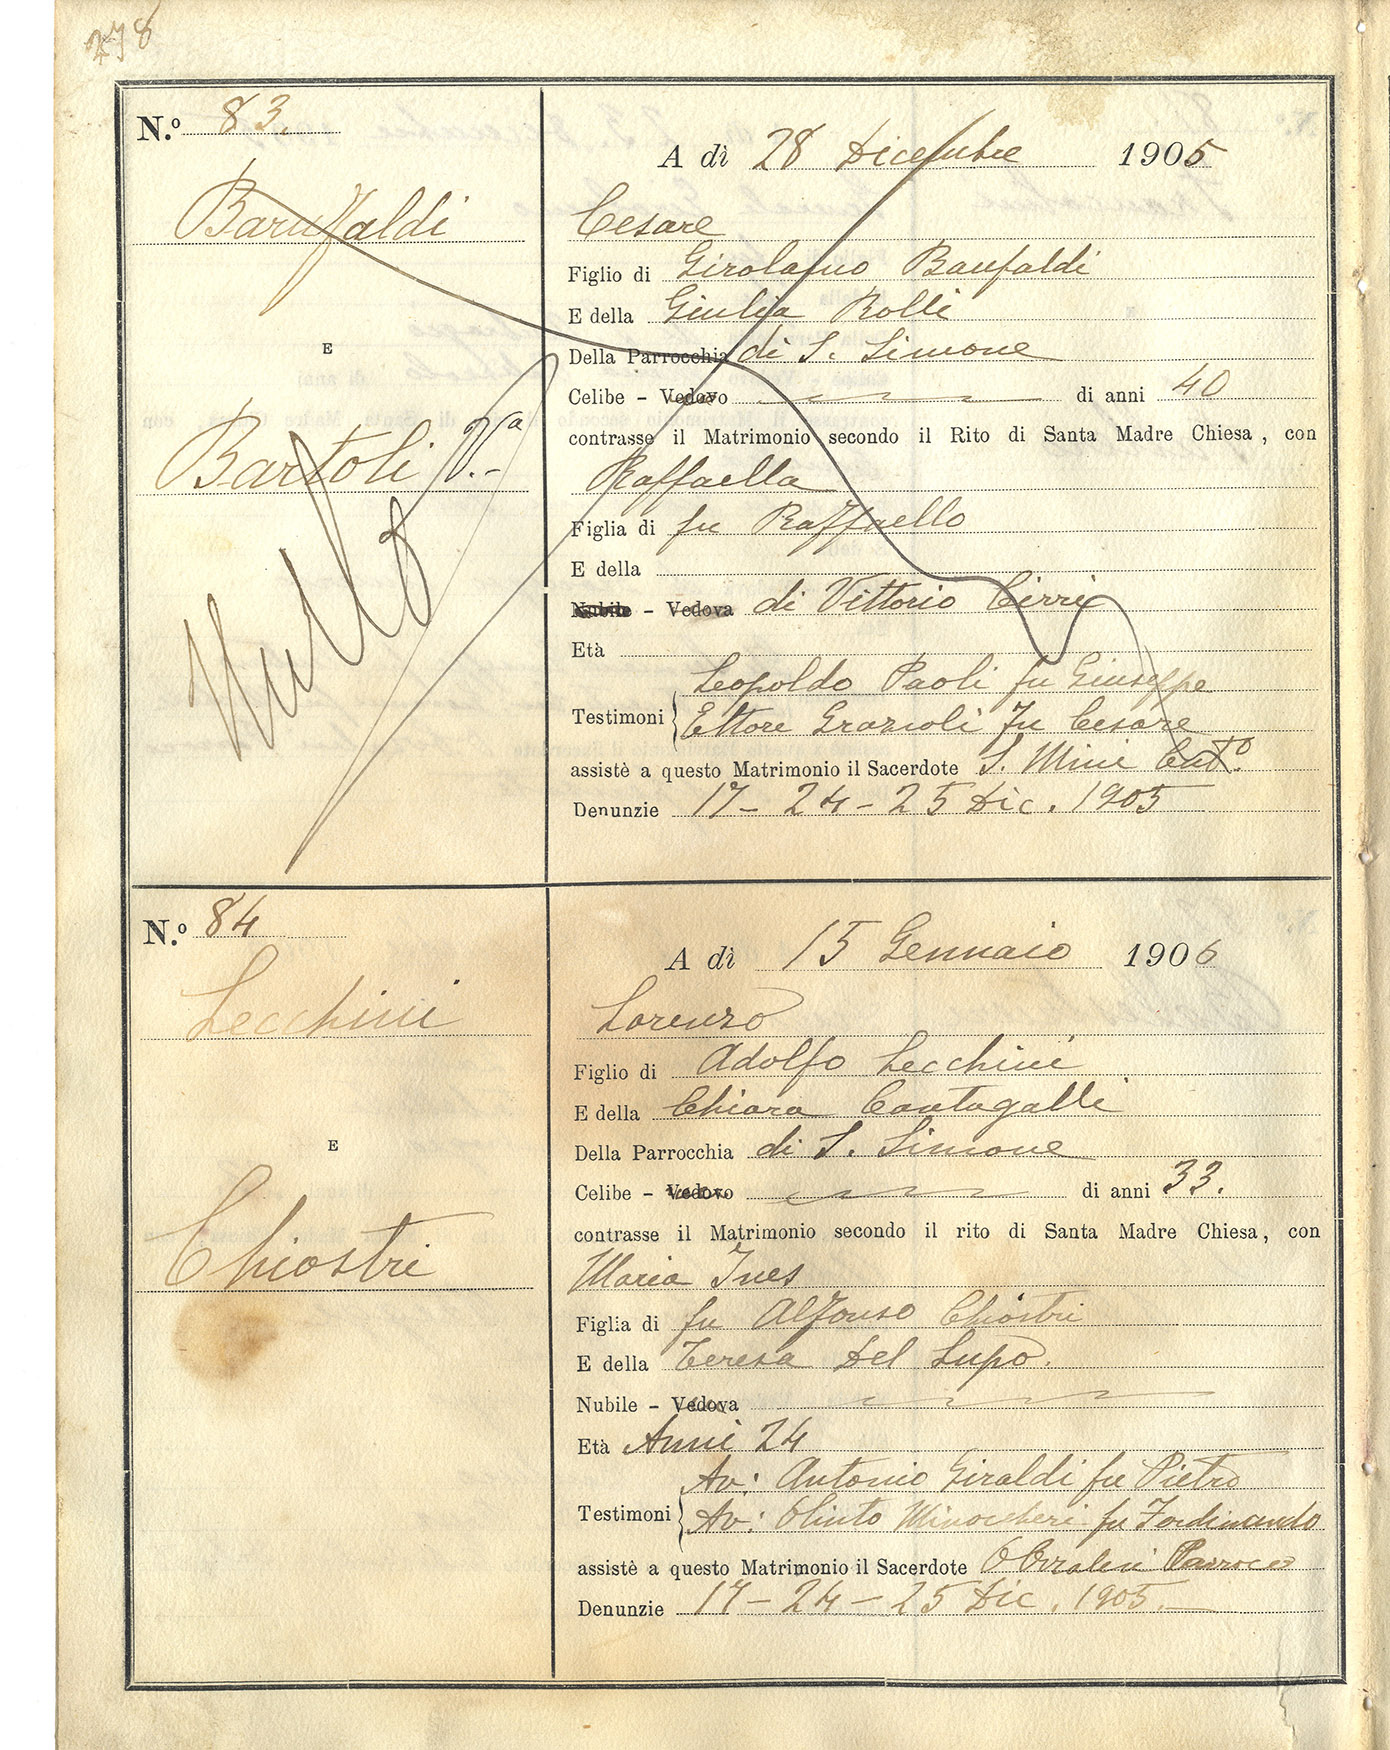 278
N.º 83.
A dì 28 Dicembre 1905
Barufaldi
Cesare
Figlio di Girolamo Barufaldi
E della Giulia Rolli
E
Della Parrocchia di S. Simone
Celibe - Vedovo di anni 40
contrasse il Matrimonio secondo il Rito di Santa Madre Chiesa, con
Bartoli V.ª
Raffaella
Figlia di fu Raffaello
E della
Nullo
Nubile - Vedova di Vittorio Cirri
Età
Leopoldo Paoli fu Giuseppe
Testimoni Ettore Grazioli fu Cesare
assistè a questo Matrimonio il Sacerdote S. Mini
Denunzie 17 - 24 - 25 Dic. 1905
N.º 84
A dì 15 Gennaio 1906
Lecchini
Lorenzo
Figlio di Adolfo Lecchini
E della Chiara Cantagalli
E
Della Parrocchia di S. Simone
Celibe - Vedovo di anni 33.
contrasse il Matrimonio secondo il rito di Santa Madre Chiesa, con
Chiostri
Maria Ines
Figlia di fu Alfonso Chiostri
E della Teresa Del Lupo.
Nubile - Vedova
Età Anni 24
Av: Antonio Giraldi fu Pietro
Testimoni Av: Olinto fu Ferdinando
assistè a questo Matrimonio il Sacerdote Parroco
Denunzie 17 - 24 - 25 Dic. 1905.